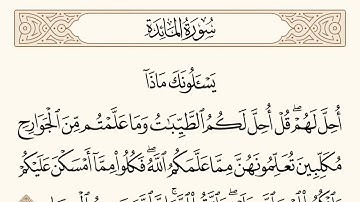 سُورَةُ المَائِدَة
يَسْـَٔلُونَكَ مَاذَآ
أُحِلَّ لَهُمْۖ قُلْ أُحِلَّ لَكُمُ ٱلطَّيِّبَٰتُ وَمَا عَلَّمْتُم مِّنَ ٱلْجَوَارِحِ
مُكَلِّبِينَ تُعَلِّمُونَهُنَّ مِمَّا عَلَّمَكُمُ ٱللَّهُۖ فَكُلُوا۟ مِمَّآ أَمْسَكْنَ عَلَيْكُمْ